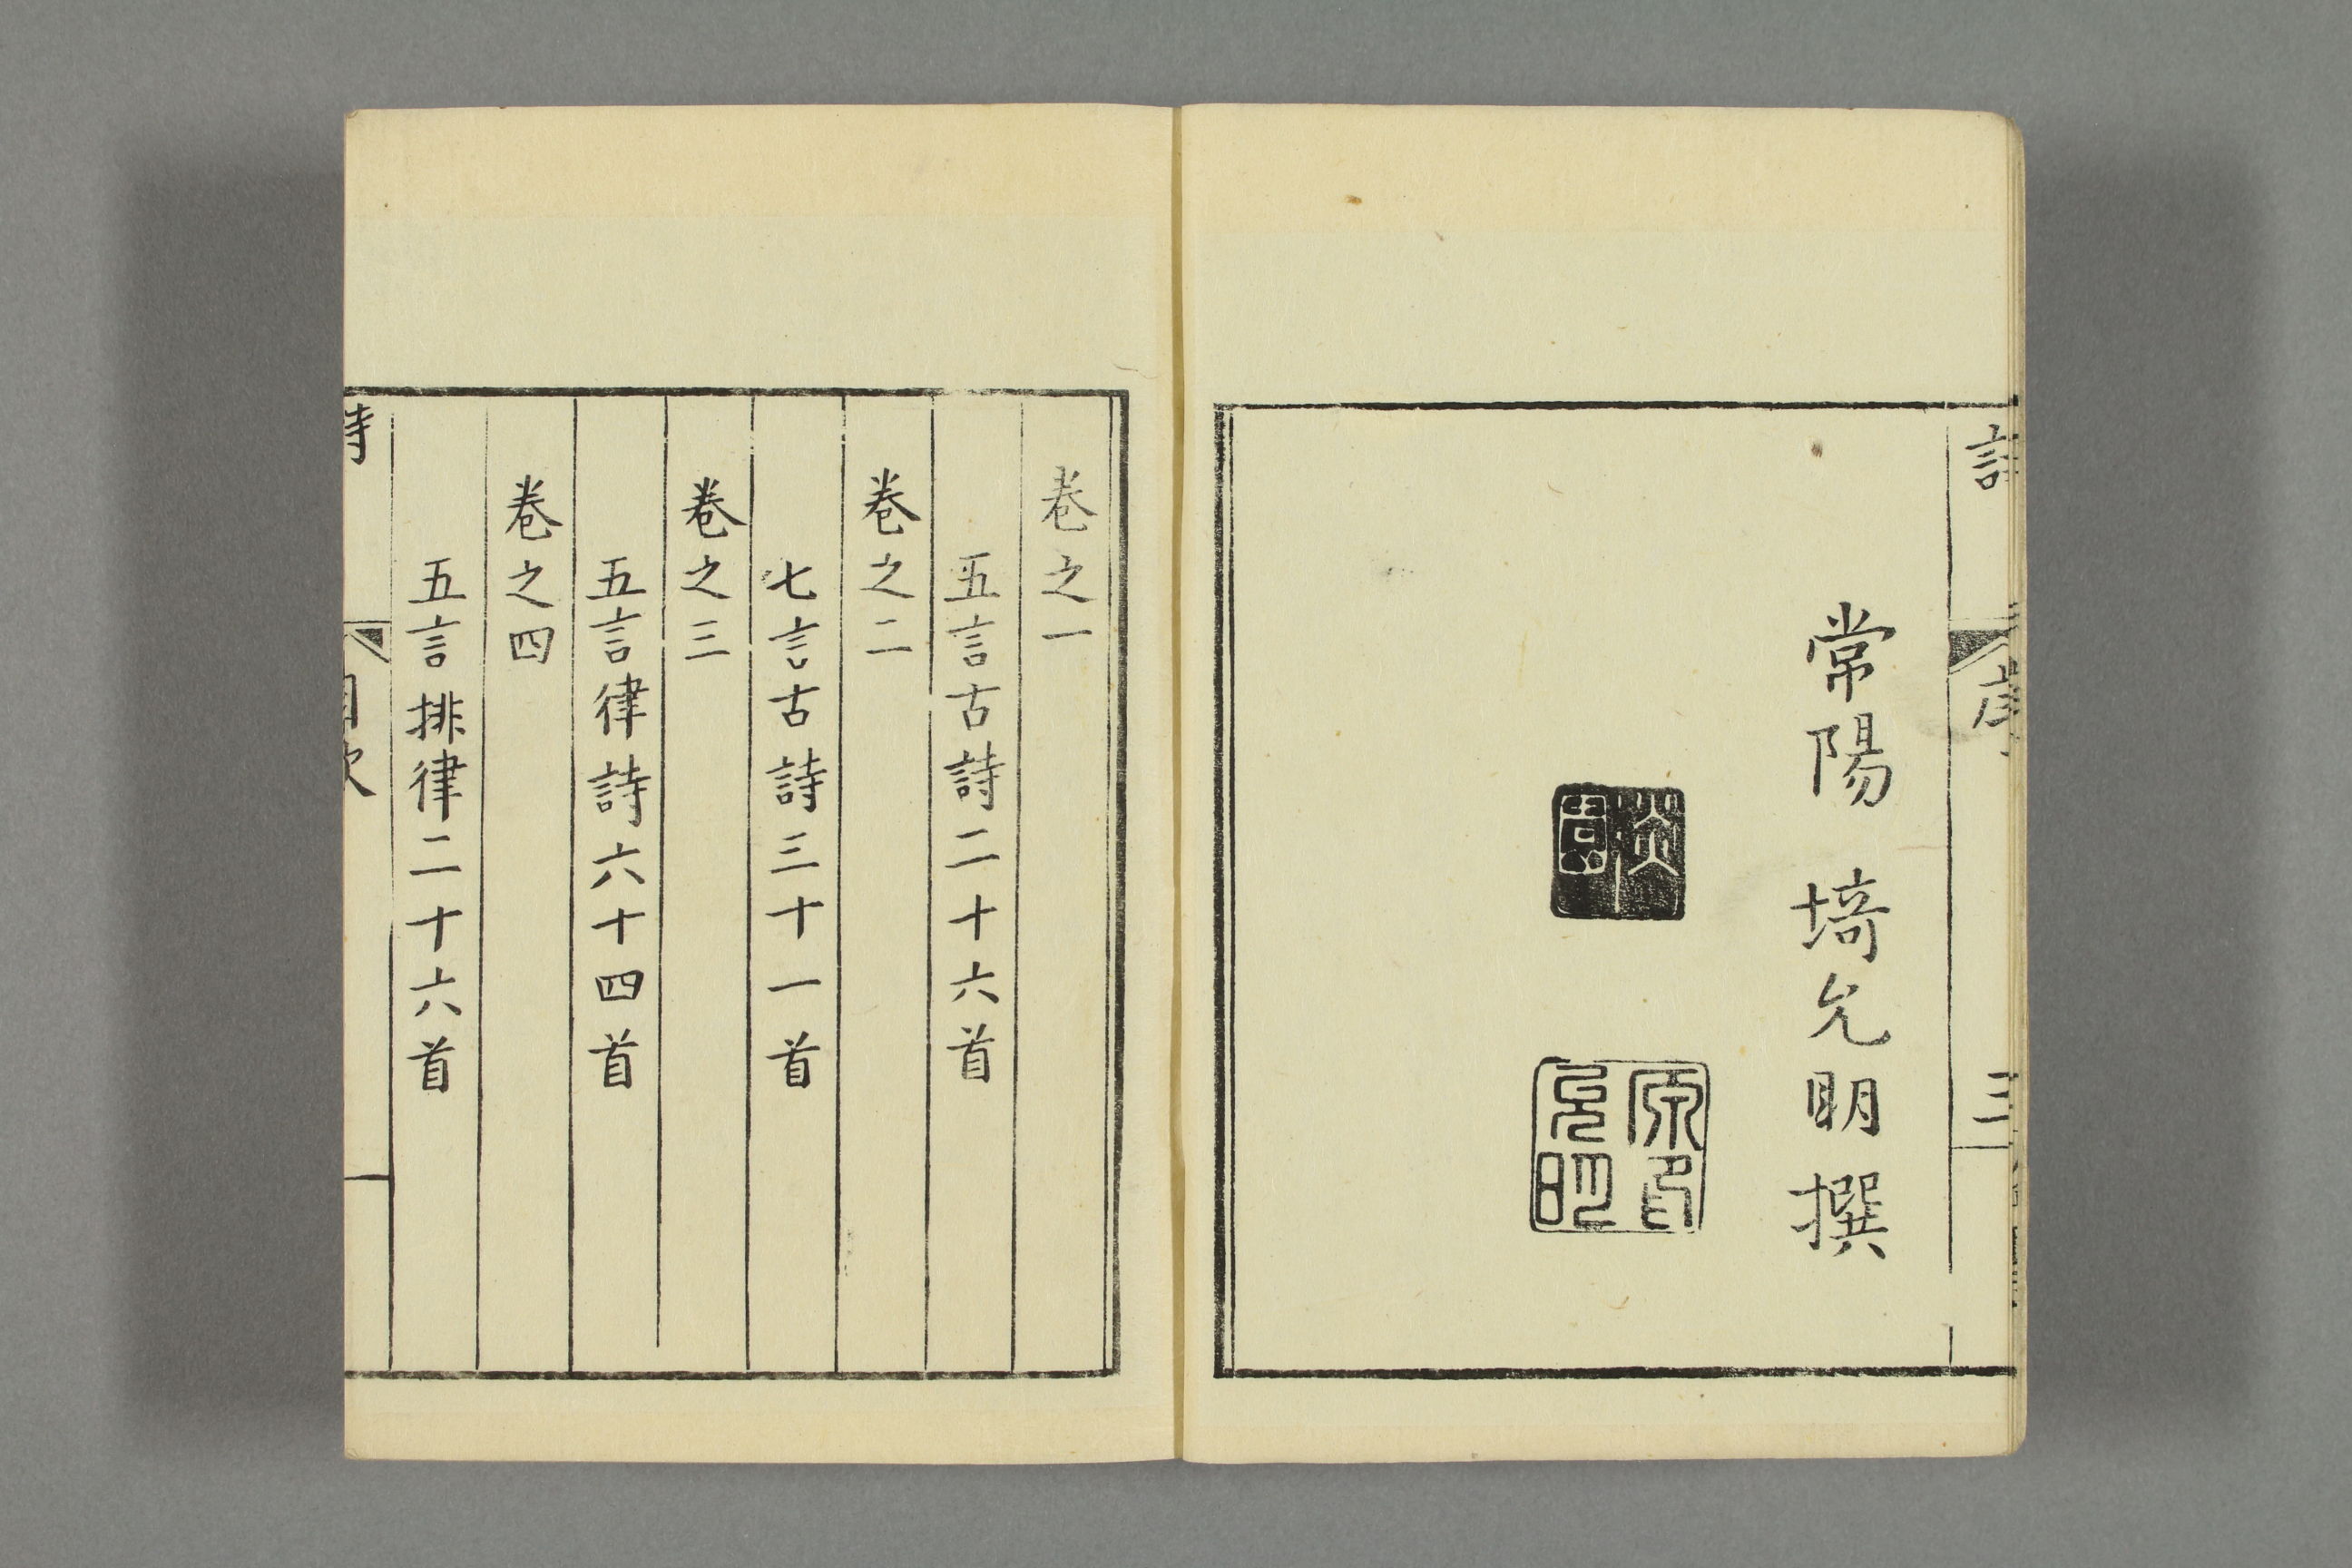 序
三
常陽 埼允明撰
原允明印
卷之一
五言古詩二十六首
卷之二
七言古詩三十一首
卷之三
五言律詩六十四首
卷之四
五言排律二十六首
詩
目次